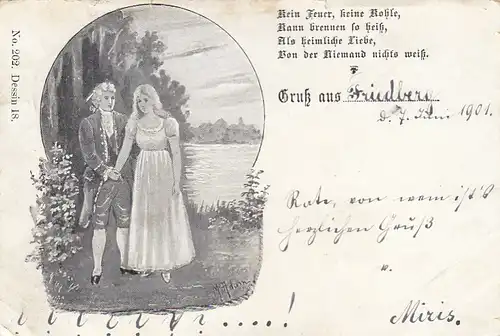 No. 202. Dessin 18.
Kein Feuer, keine Kohle,
Kann brennen so heiß,
Als heimliche Liebe,
Von der Niemand nichts weiß.
Gruß aus Friedberg
d. 7. Juni 1901.
Rate, von wem ist's
herzlichen Gruß
v.
Miris.